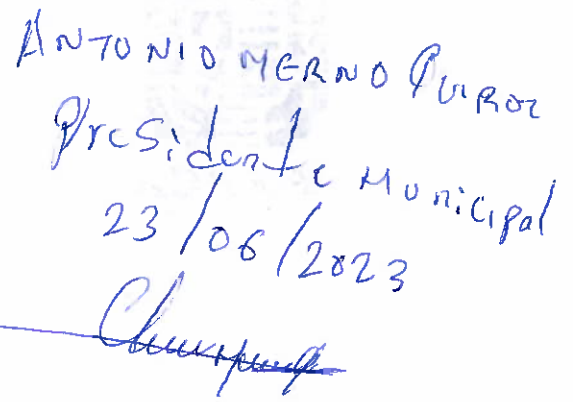 ANTONIO MERNO QUIROZ
Presidente Municipal
23/06/2023